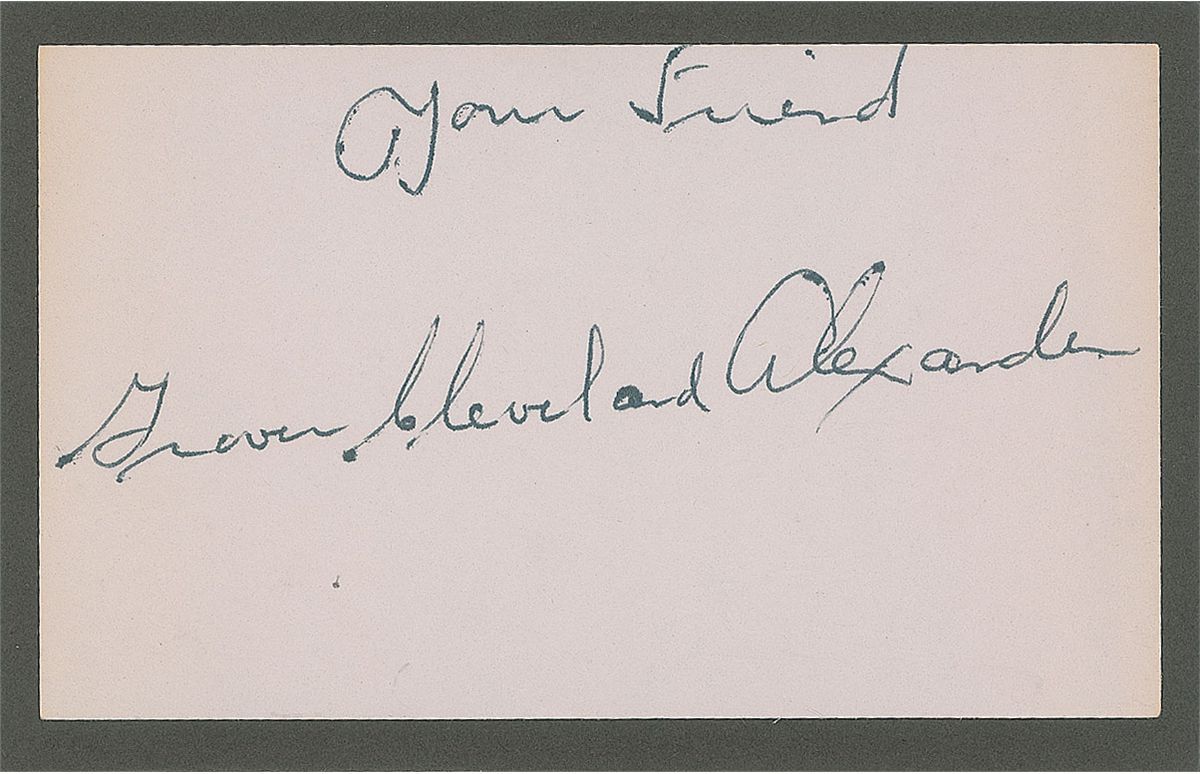 Your Friend
Grover Cleveland Alexander